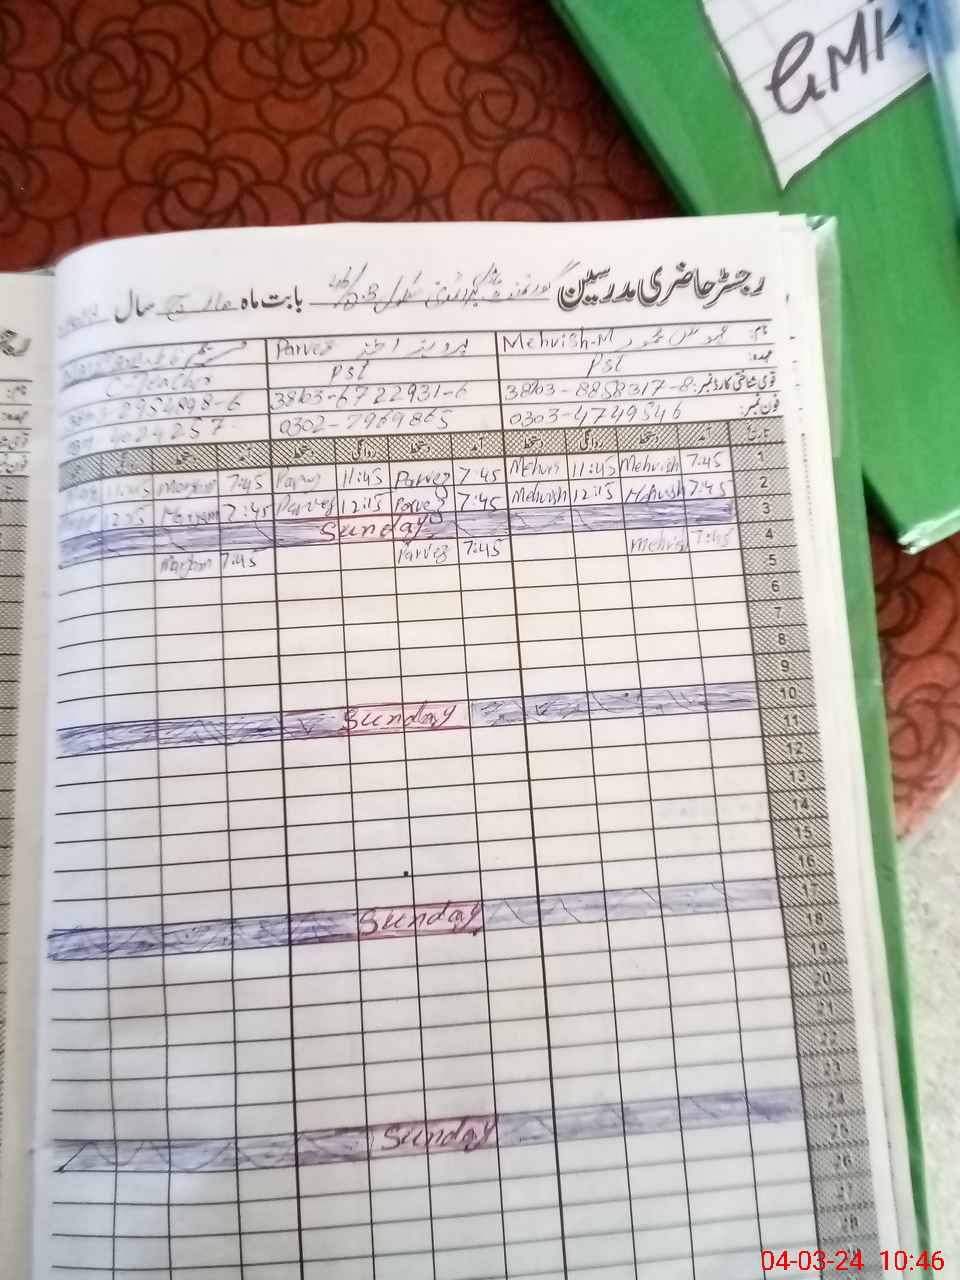 GMM
رجسٹر حاضری مدرسین گورنمنٹ بابت ماہ مارچ سال
نام: Mehvish-M Parvez پرویز اختر
عہدہ: Pst Pst C. Teacher
قومی شناختی کارڈ نمبر: 38403-8858317-8 38403-6722931-6
فون نمبر: 0303-4749546 0302-7969865
تاریخ آمد دستخط روانگی دستخط آمد دستخط روانگی دستخط آمد دستخط روانگی
1 7:45 Mehvish 11:45 Mehvish 7:45 Parvez 11:45 Parvez 7:45 Maryam 11:45
2 7:45 Mehvish 12:15 Mehvish 7:45 Parvez 12:15 Parvez 7:45 Maryam 12:15
3 Sunday
4 7:45 Mehvish 7:45 Parvez 7:45 Maryam
5
6
7
8
9
10 Sunday
11
12
13
14
15
16
17 Sunday
18
19
20
21
22
23
24 Sunday
25
26
27
28
04-03-24 10:46